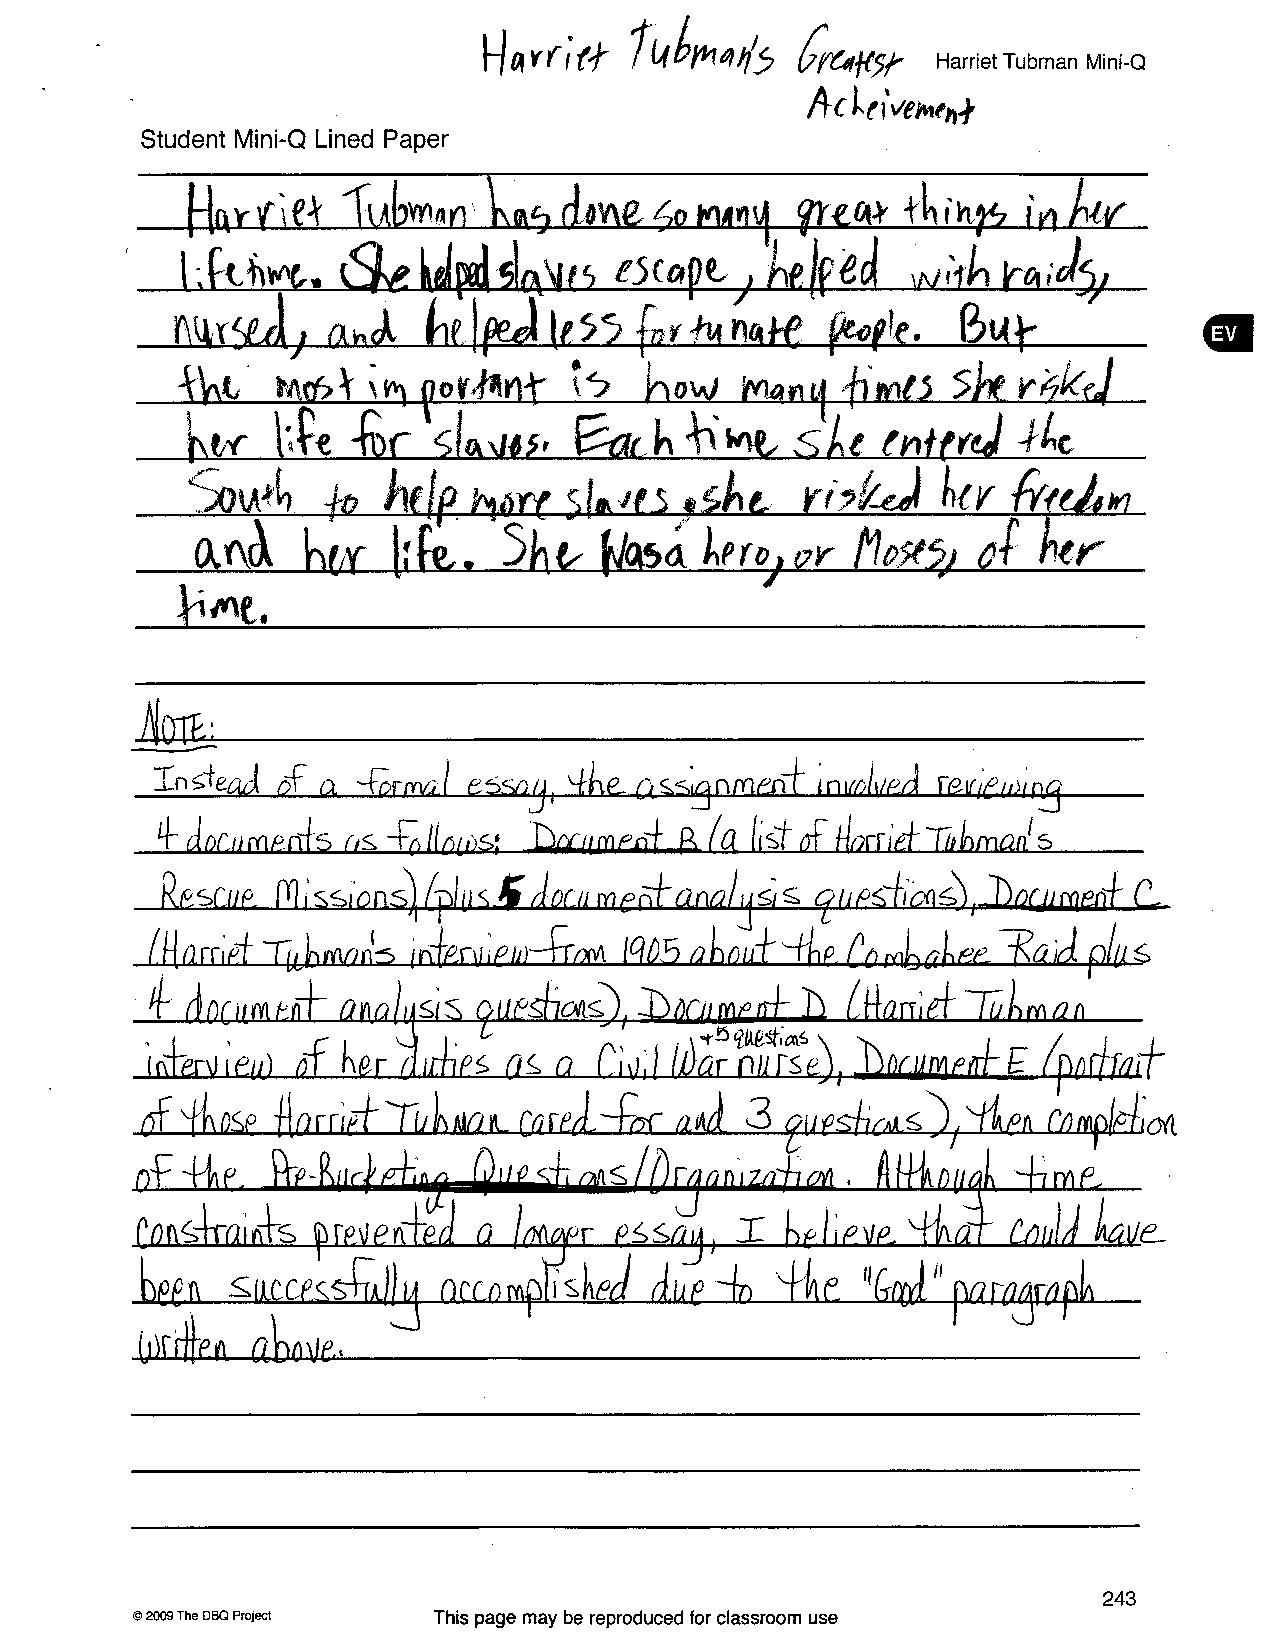 Harriet Tubman's Greatest Harriet Tubman Mini-Q
Acheivement
Student Mini-Q Lined Paper
Harriet Tubman has done so many great things in her
lifetime. She helped slaves escape, helped with raids,
nursed, and helped less fortunate people. But
EV
the most important is how many times she risked
her life for slaves. Each time she entered the
South to help more slaves, she risked her freedom
and her life. She was a hero, or Moses, of her
time.
NOTE:
Instead of a formal essay, the assignment involved reviewing
4 documents as follows: Document B (a list of Harriet Tubman's
Rescue Missions) (plus 5 document analysis questions), Document C
(Harriet Tubman's interview from 1905 about the Combahee Raid plus
4 document analysis questions), Document D (Harriet Tubman
+5 questions
interview of her duties as a Civil War nurse), Document E (portrait
of those Harriet Tubman cared for and 3 questions), then completion
of the Pre-Bucketing Questions/Organization. Although time
constraints prevented a longer essay, I believe that could have
been successfully accomplished due to the "Good" paragraph
written above.
243
© 2009 The DBQ Project This page may be reproduced for classroom use